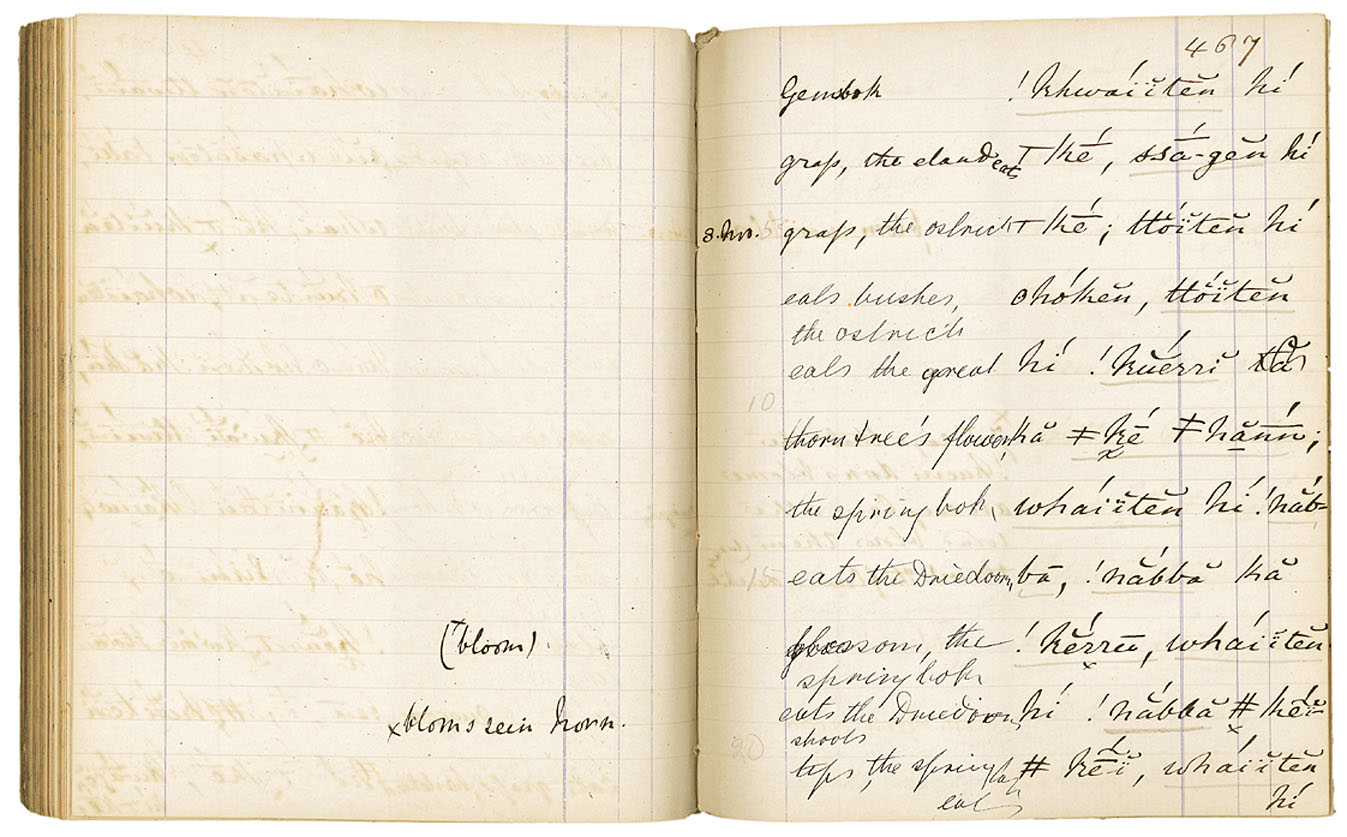 (bloom).
× bloms sein horn.
467
Gemsbok ! khwái ïtĕn hí
grass, the eland eats ͳ ké, ssā́-gĕn hí
8. Nov. grass, the ostrich ͳ ké; ttóïtĕn hí
eats bushes, ʘhókĕn, ttóïtĕn
the ostrich
eats the great hí ! kuérrĭ
10
thorn tree's flower, kă ǂ ké ǂ nănn;
the springbok, wháiïtĕn hí ! năb-
15 eats the Driedoorn, bā, ! năbbă kă
blossom, the ! kĕrrū, wháiïtĕn
springbok
eats the Driedoorn hí ! năbbă ⧧ kĕï-
shoots
20 tips, the springbok ⧧ kĕï, wháiïtĕn
eats hí